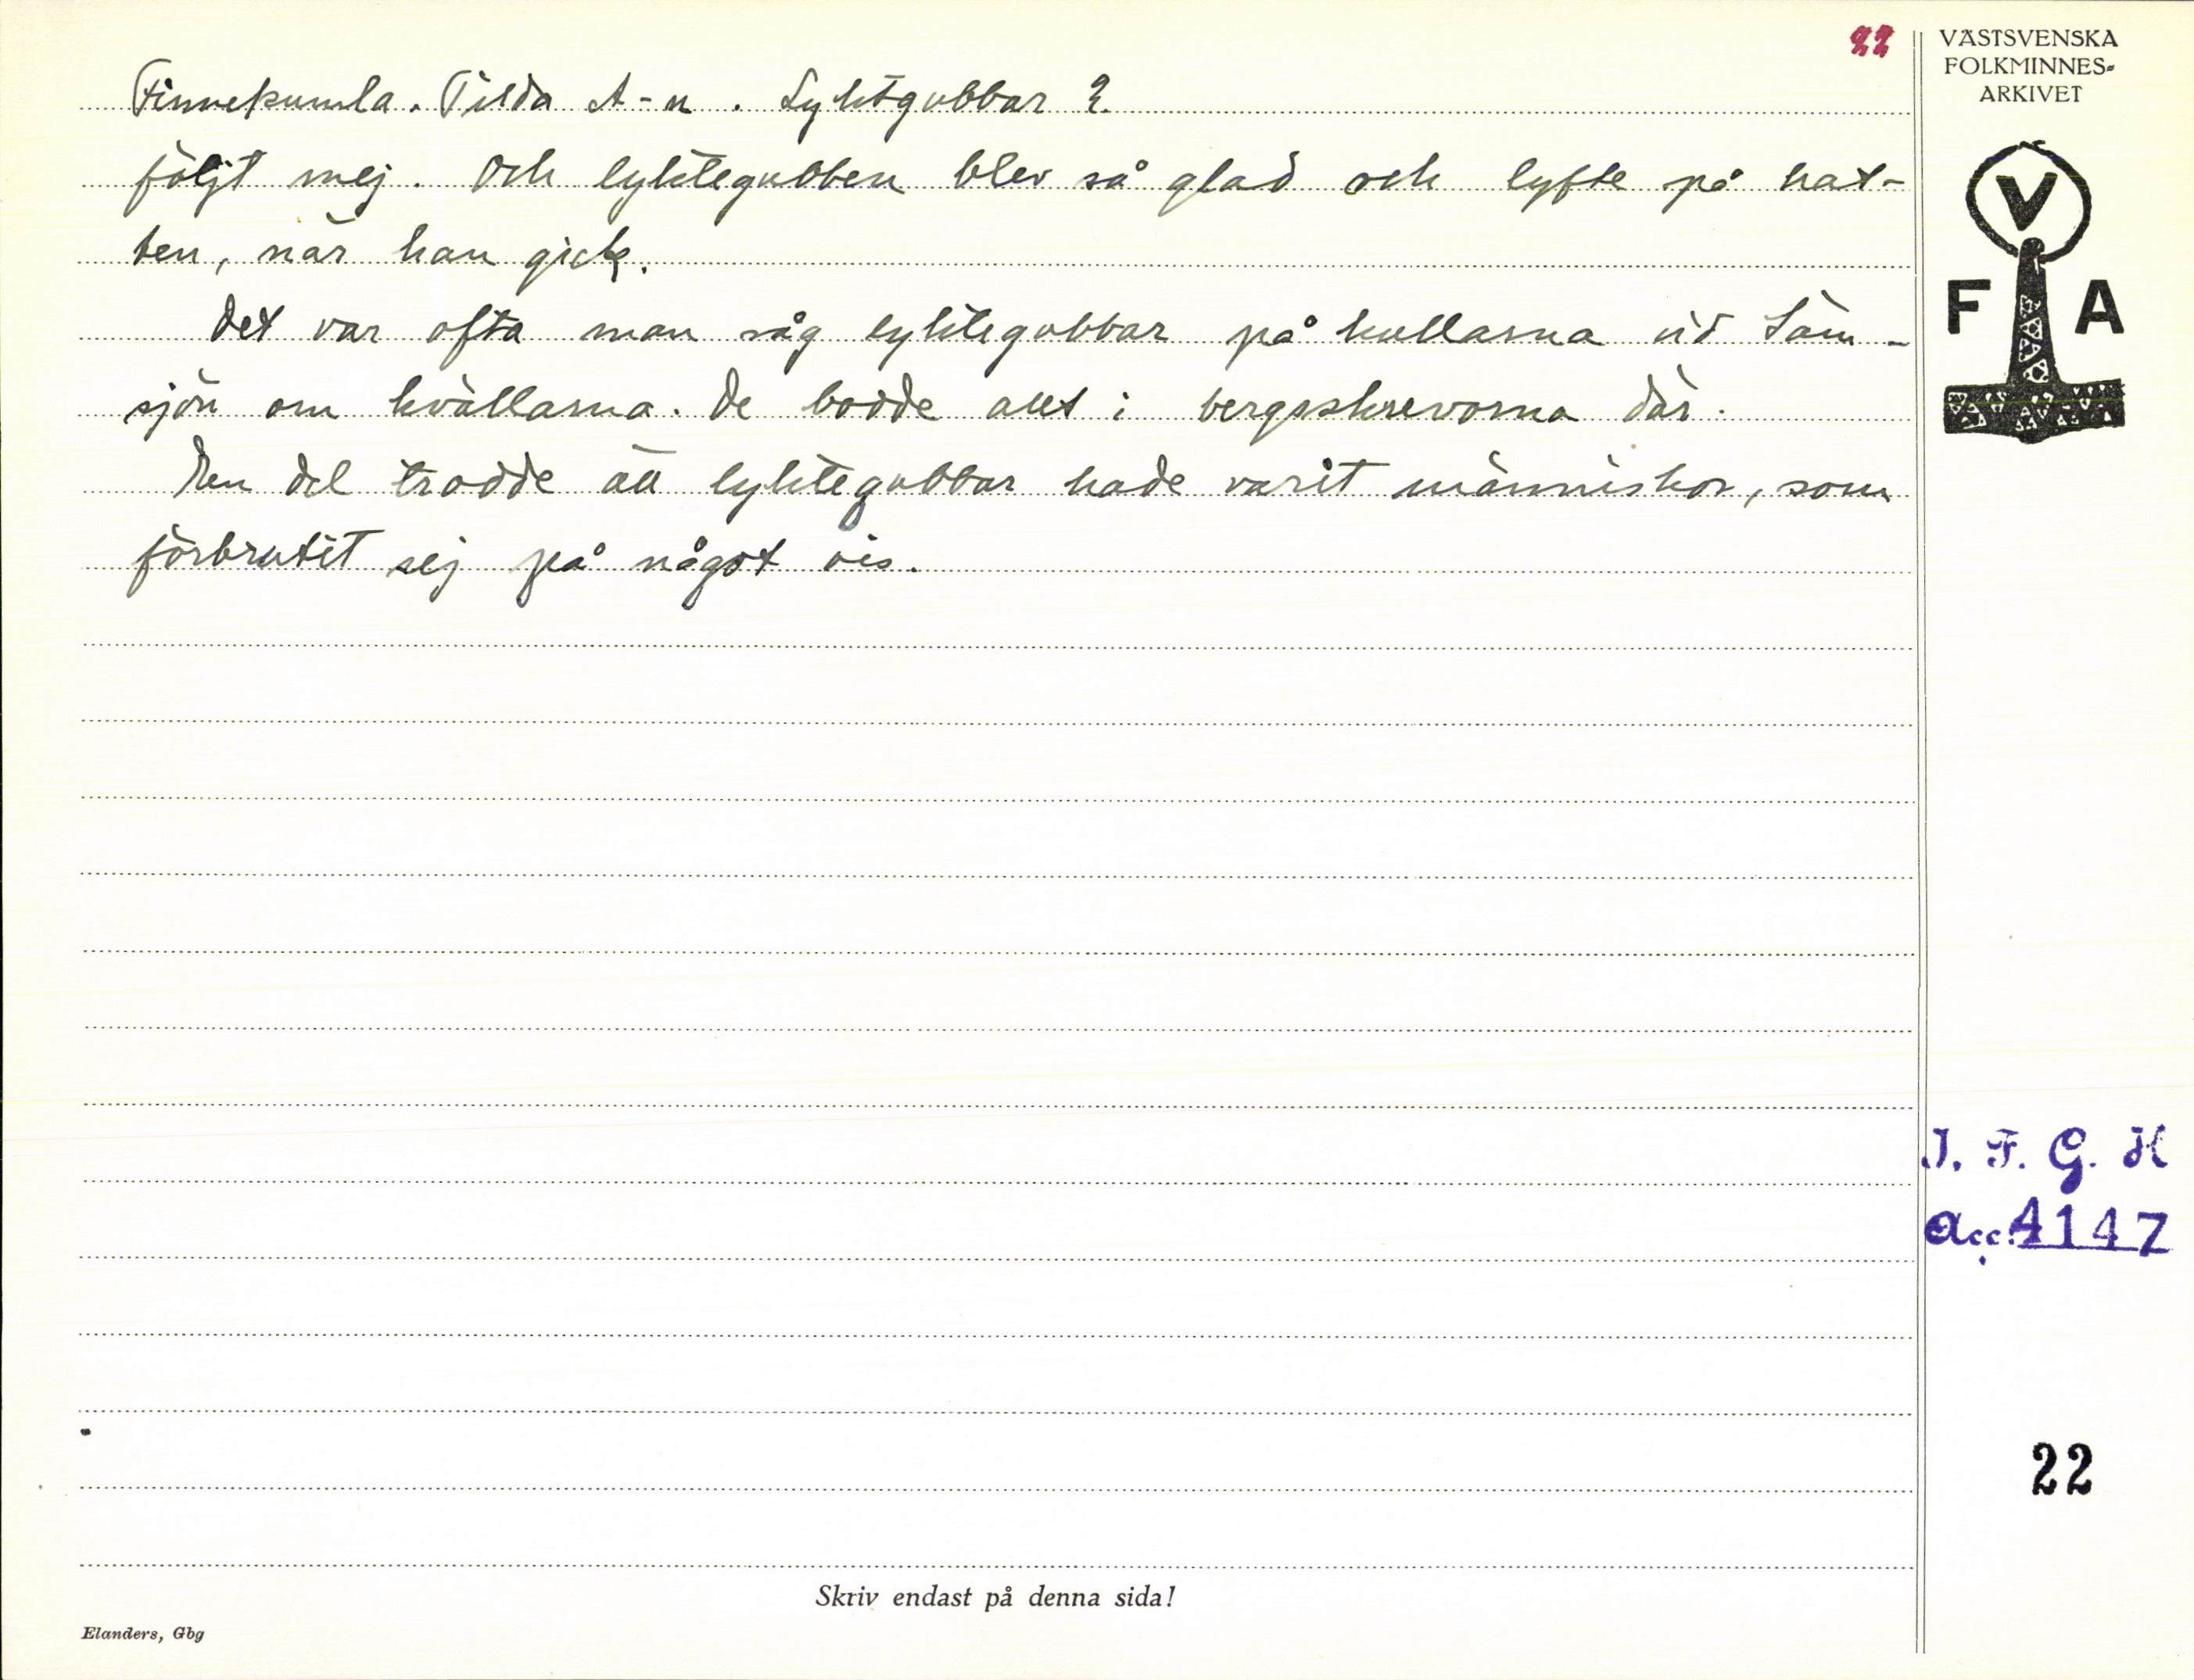 22
VÄSTSVENSKA
FOLKMINNES-
ARKIVET
Finnekumla. Tilda A-n. Lyktgubbar 2.
följt mej. Och lyktegubben blev så glad och lyfte på hat-
ten, när han gick.
Det var ofta man såg lyktegubbar på kullarna vid Säm-
sjön om kvällarna. De bodde allt i bergsskrevorna där.
En del trodde att lyktegubbar hade varit människor, som
förbrutit sej på något vis.
V
F A
I. F. G. H
Acc. 4147
22
Skriv endast på denna sida!
Elanders, Gbg